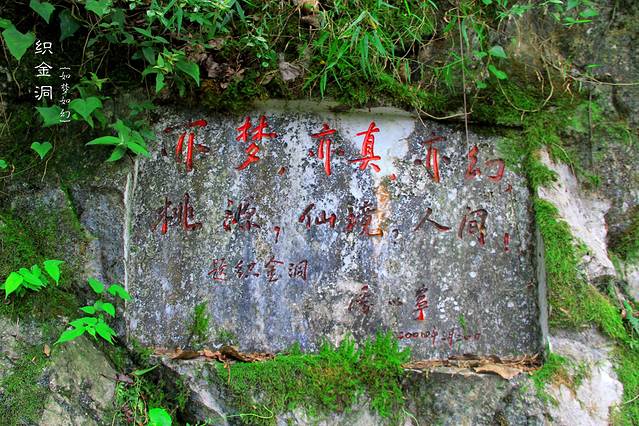 织金洞
[如梦如幻]
亦梦,亦真,亦幻,
桃源,仙境,人间!
题织金洞